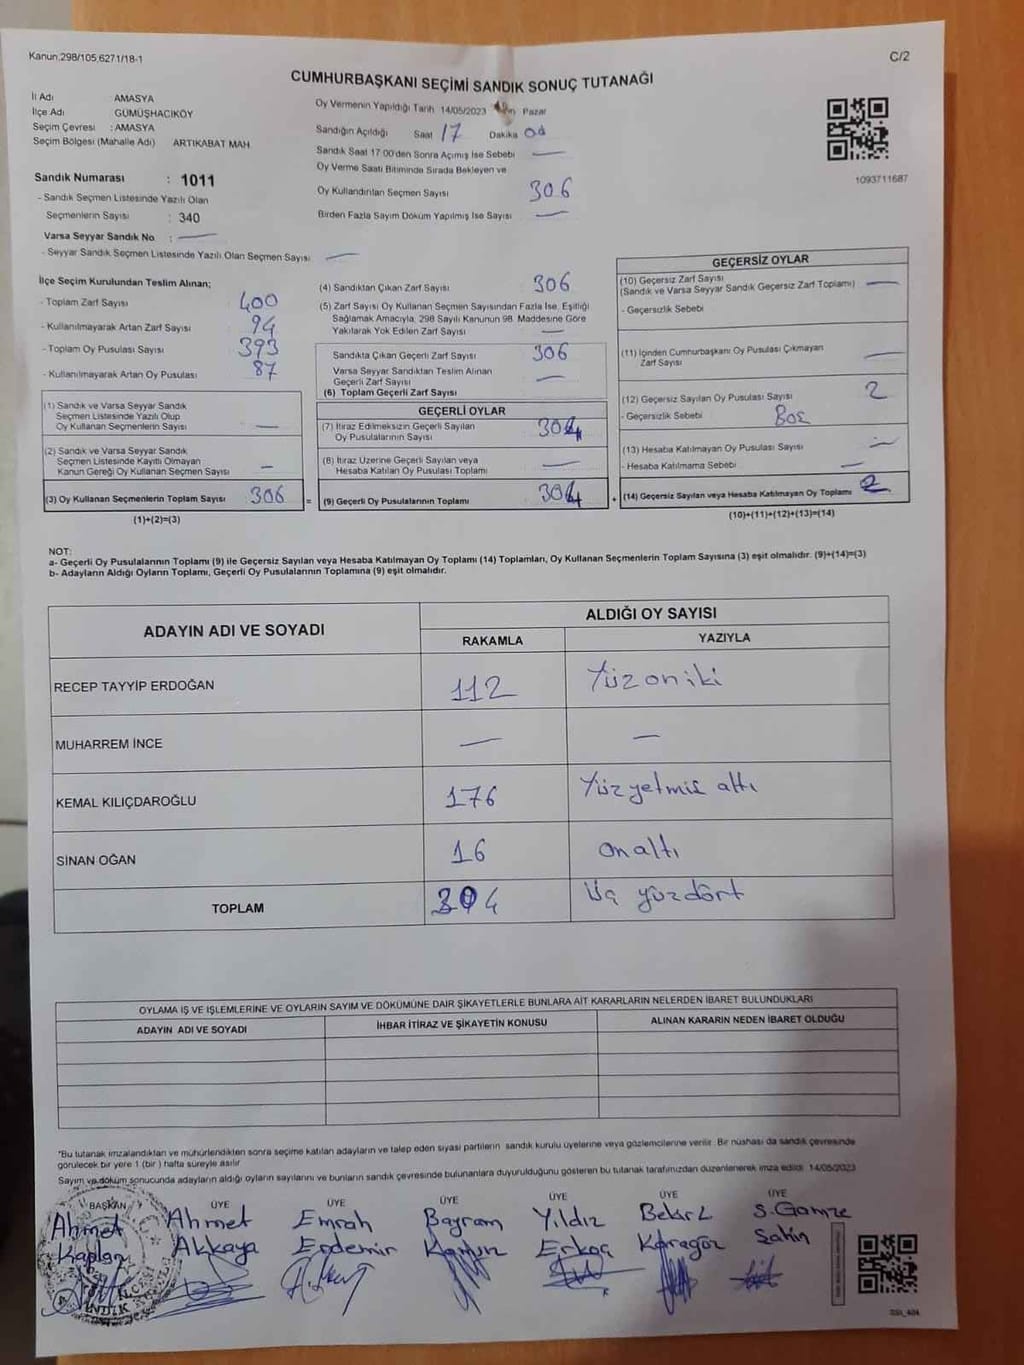 Kanun.298/105,6271/18-1
C/2
CUMHURBAŞKANI SEÇİMİ SANDIK SONUÇ TUTANAĞI
İl Adı AMASYA
İlçe Adı GÜMÜŞHACIKÖY
Seçim Çevresi : AMASYA
Seçim Bölgesi (Mahalle Adı) ARTIKABAT MAH
Sandık Numarası : 1011
- Sandık Seçmen Listesinde Yazılı Olan
Seçmenlerin Sayısı : 340
Varsa Seyyar Sandık No : —
- Seyyar Sandık Seçmen Listesinde Yazılı Olan Seçmen Sayısı —
Oy Vermenin Yapıldığı Tarih 14/05/2023 Pazar
Sandığın Açıldığı Saat 17 Dakika
Sandık Saat 17:00'den Sonra Açımış İse Sebebi —
Oy Verme Saati Bitiminde Sırada Bekleyen ve
Oy Kullandırılan Seçmen Sayısı 306
Birden Fazla Sayım Döküm Yapılmış İse Sayısı —
1093711687
İlçe Seçim Kurulundan Teslim Alınan;
- Toplam Zarf Sayısı 400
- Kullanılmayarak Artan Zarf Sayısı 94
- Toplam Oy Pusulası Sayısı 393
- Kullanılmayarak Artan Oy Pusulası 87
(1) Sandık ve Varsa Seyyar Sandık
Seçmen Listesinde Yazılı Olup
Oy Kullanan Seçmenlerin Sayısı —
(2) Sandık ve Varsa Seyyar Sandık
Seçmen Listesinde Kayıtlı Olmayan
Kanun Gereği Oy Kullanan Seçmen Sayısı —
(3) Oy Kullanan Seçmenlerin Toplam Sayısı 306 =
(1)+(2)=(3)
(4) Sandıktan Çıkan Zarf Sayısı 306
(5) Zarf Sayısı Oy Kullanan Seçmen Sayısından Fazla İse, Eşitliği
Sağlamak Amacıyla, 298 Sayılı Kanunun 98. Maddesine Göre
Yakılarak Yok Edilen Zarf Sayısı —
Sandıkta Çıkan Geçerli Zarf Sayısı 306
Varsa Seyyar Sandıktan Teslim Alınan
Geçerli Zarf Sayısı —
(6) Toplam Geçerli Zarf Sayısı
GEÇERLİ OYLAR
(7) İtiraz Edilmeksizin Geçerli Sayılan
Oy Pusulalarının Sayısı 304
(8) İtiraz Üzerine Geçerli Sayılan veya
Hesaba Katılan Oy Pusulası Toplamı —
(9) Geçerli Oy Pusulalarının Toplamı 304 +
GEÇERSİZ OYLAR
(10) Geçersiz Zarf Sayısı
(Sandık ve Varsa Seyyar Sandık Geçersiz Zarf Toplamı) —
- Geçersizlik Sebebi
(11) İçinden Cumhurbaşkanı Oy Pusulası Çıkmayan
Zarf Sayısı —
(12) Geçersiz Sayılan Oy Pusulası Sayısı 2
- Geçersizlik Sebebi Boş
(13) Hesaba Katılmayan Oy Pusulası Sayısı —
- Hesaba Katılmama Sebebi —
(14) Geçersiz Sayılan veya Hesaba Katılmayan Oy Toplamı 2
(10)+(11)+(12)+(13)=(14)
NOT:
a- Geçerli Oy Pusulalarının Toplamı (9) ile Geçersiz Sayılan veya Hesaba Katılmayan Oy Toplamı (14) Toplamları, Oy Kullanan Seçmenlerin Toplam Sayısına (3) eşit olmalıdır. (9)+(14)=(3)
b- Adayların Aldığı Oyların Toplamı, Geçerli Oy Pusulalarının Toplamına (9) eşit olmalıdır.
ADAYIN ADI VE SOYADI
ALDIĞI OY SAYISI
RAKAMLA YAZIYLA
RECEP TAYYİP ERDOĞAN 112 Yüzoniki
MUHARREM İNCE — —
KEMAL KILIÇDAROĞLU 176 Yüzyetmiş altı
SİNAN OĞAN 16 onaltı
TOPLAM 304 Üç yüzdört
OYLAMA İŞ VE İŞLEMLERİNE VE OYLARIN SAYIM VE DÖKÜMÜNE DAİR ŞİKAYETLERLE BUNLARA AİT KARARLARIN NELERDEN İBARET BULUNDUKLARI
ADAYIN ADI VE SOYADI İHBAR İTİRAZ VE ŞİKAYETİN KONUSU ALINAN KARARIN NEDEN İBARET OLDUĞU
"Bu tutanak imzalandıktan ve mühürlendikten sonra seçime katılan adayların ve talep eden siyasi partilerin sandık kurulu üyelerine veya gözlemcilerine verilir. Bir nüshası da sandık çevresinde
görülecek bir yere 1 (bir) hafta süreyle asılır
Sayım ve döküm sonucunda adayların aldığı oyların sayılarını ve bunların sandık çevresinde bulunanlara duyurulduğunu gösteren bu tutanak tarafımızdan düzenlenerek imza edildi. 14/05/2023
BAŞKAN ÜYE ÜYE ÜYE ÜYE ÜYE ÜYE
Ahmet Ahmet Emrah Bayram Yıldız Bekir S. Gamze
Kaplan Akkaya Erdemir Erkoç Karagöz Şahin